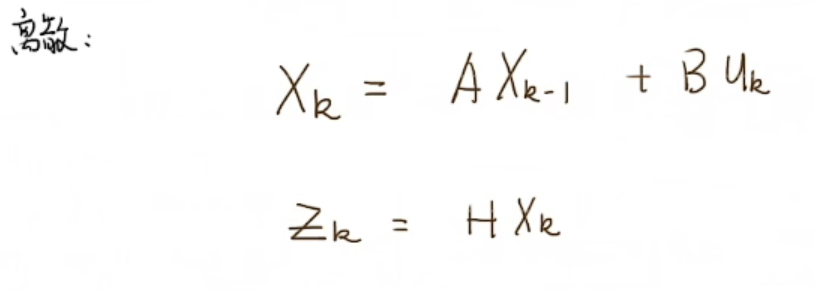 离散:
X_k = A X_{k-1} + B u_k
Z_k = H X_k